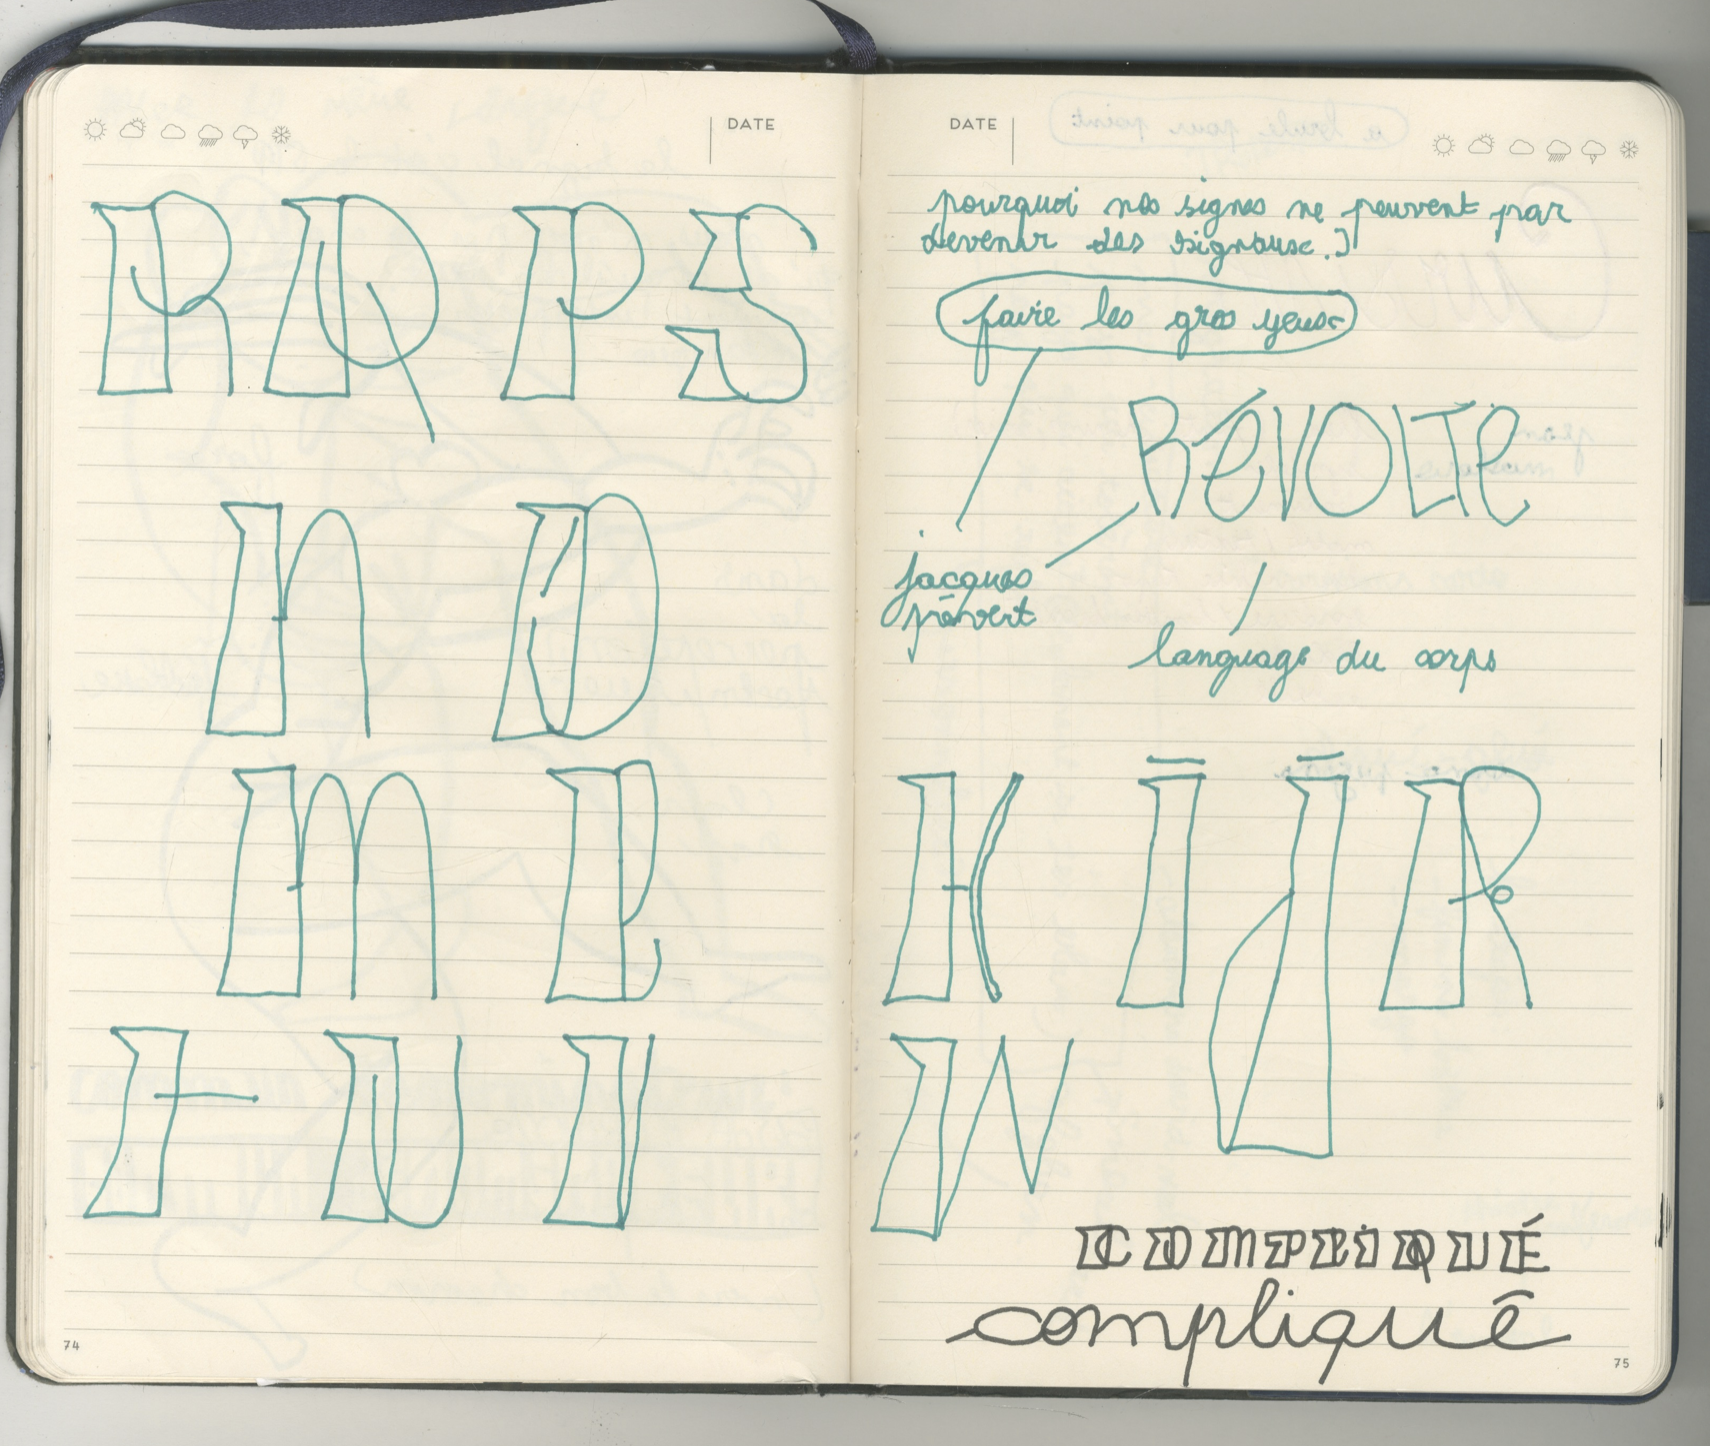 DATE
R Q P S
n D
m B
F U V
74
DATE
pourquoi nos signes ne peuvent par
devenir des signaux.
faire les gros yeux
RÉVOLTE
jacques
prévert
language du corps
K I J R
W
COMPLIQUÉ
compliqué
75